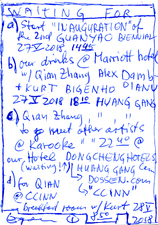 WAITING FOR
a) Start "INAUGURATION" of
the 2nd GUANYAO BIENNIAL
27 V 2018, 1445
b) our drinks @ Harriott hotel
w/ Qian Zhang Alex Damb-
+ KURT BIGENHO OIANU
27 V 2018 1810 HUANG GANG
c) Qian Zhang
to go meet other artists
@ Karooke 2240 @
our Hotel DONGCHENGHOTELS
(waiting) HUANG GANG
d) for QIAN DOSSEN.COM
@ CCINN "CCINN"
breakfast room w/ Kurt 28 V
850 2018